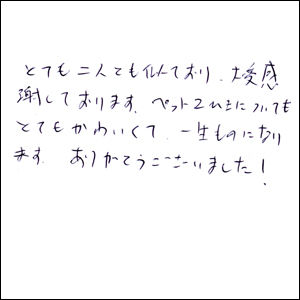 とても二人とも似ており、大変感
謝しております。ペット2匹についても
とてもかわいくて、一生ものになり
ます。ありがとうございました！